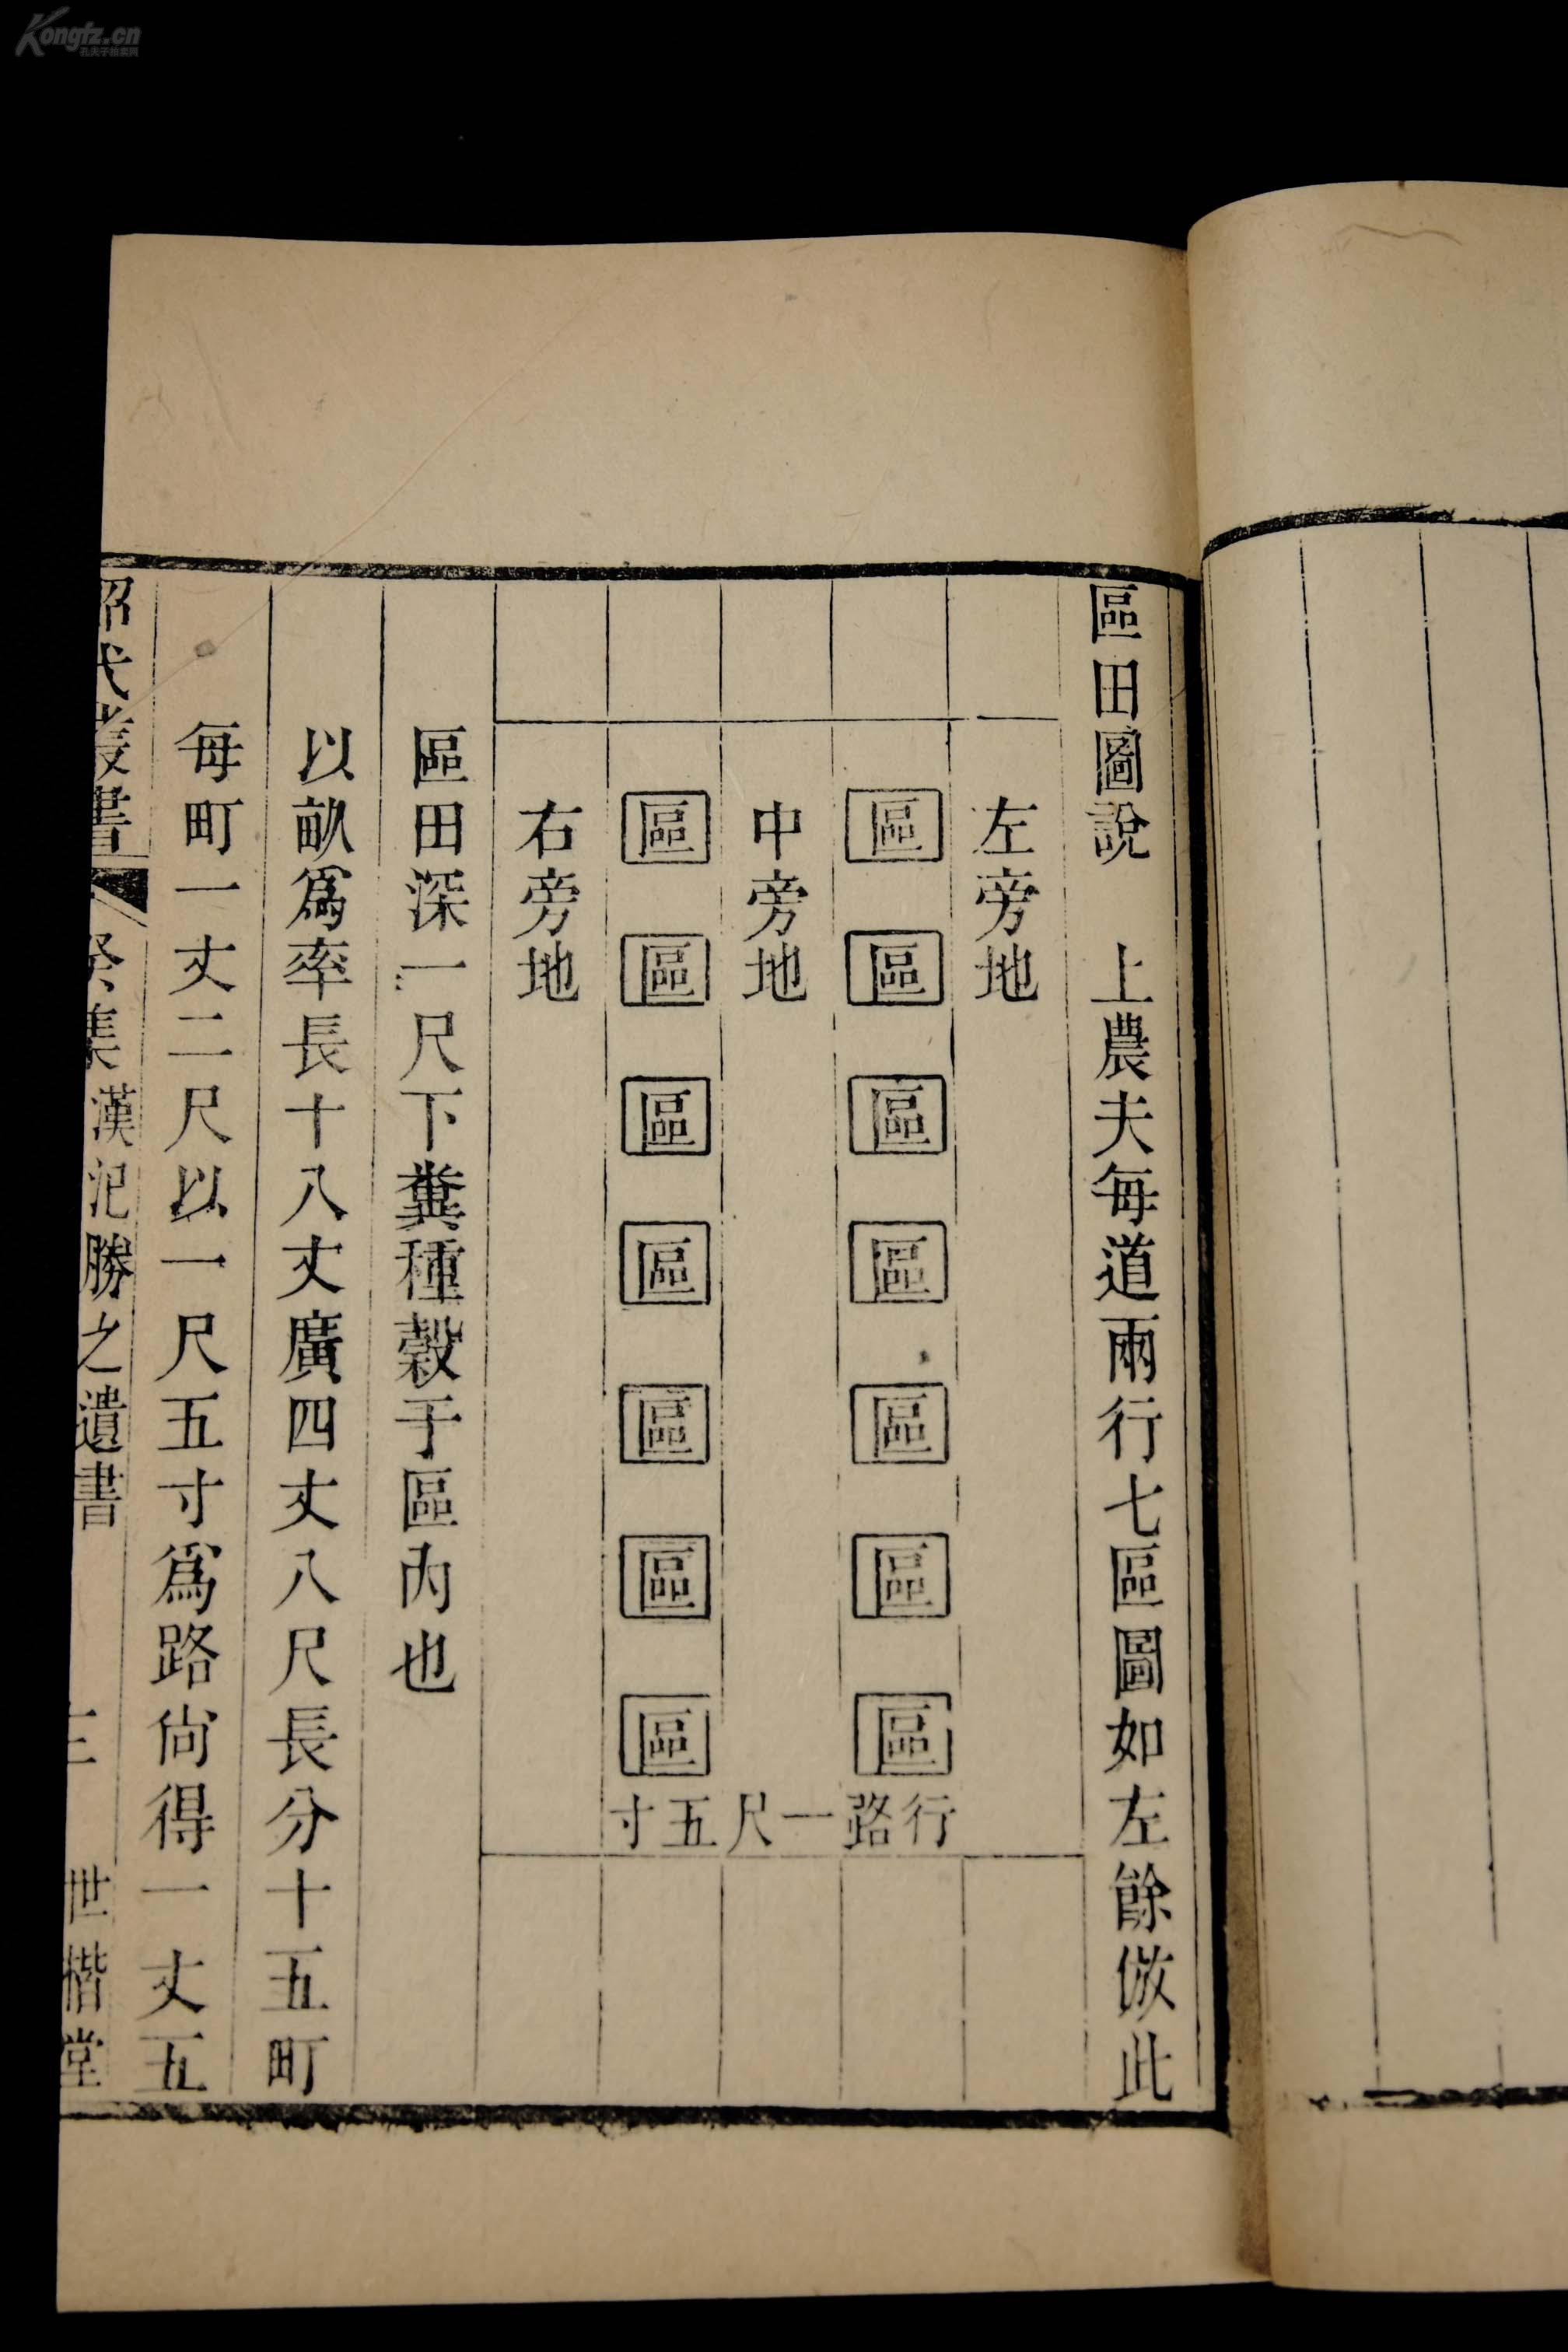 區田圖說　上農夫每道兩行七區圖如左餘倣此
左旁地
區 區 區 區 區 區 區
中旁地
區 區 區 區 區 區 區
右旁地
行路一尺五寸
區田深一尺下糞種榖于區內也
以畝爲率長十八丈廣四丈八尺長分十五町
每町一丈二尺以一尺五寸爲路尙得一丈五
昭代叢書 癸集 漢氾勝之遺書 三 世楷堂
Kongfz.cn
孔夫子旧书网